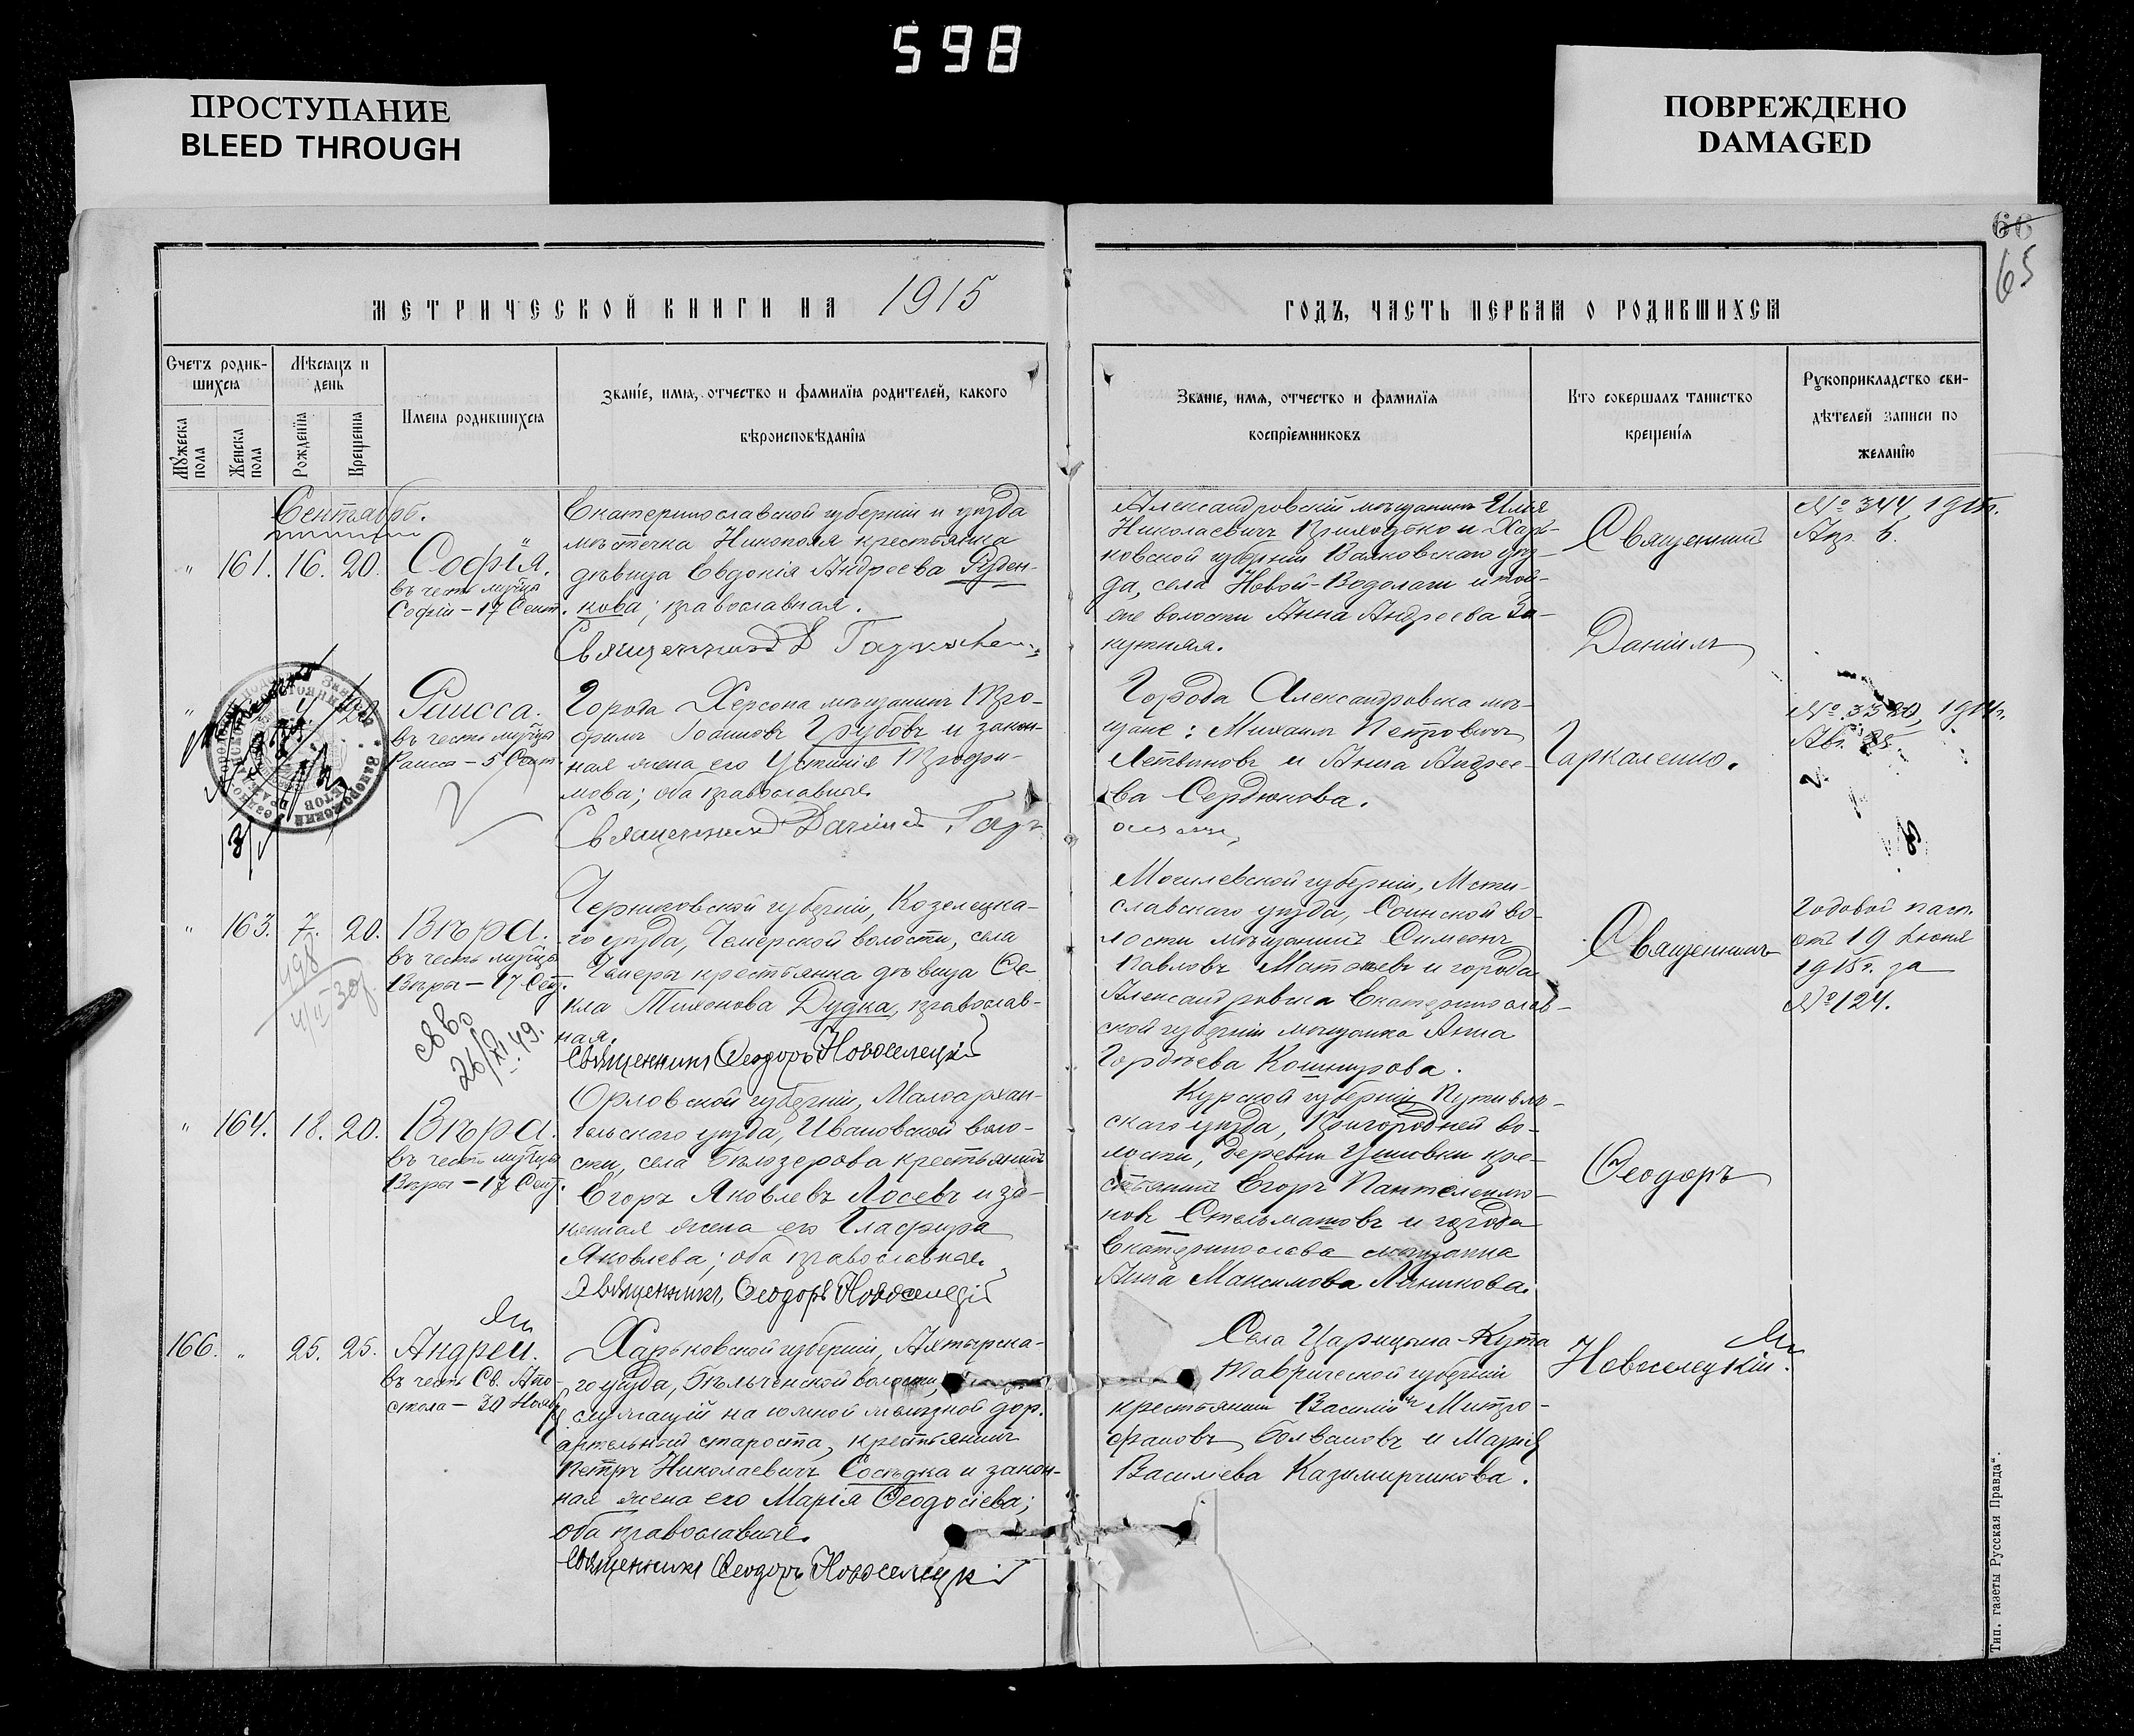 598
ПРОСТУПАНИЕ
BLEED THROUGH
ПОВРЕЖДЕНО
DAMAGED
66
65
МЕТРИЧЕСКОЙ КНИГИ НА 1915
ГОДЪ, ЧАСТЬ ПЕРВАЯ О РОДИВШИХСЯ
Счетъ родив-
шихся
Мѣсяцъ и
день
Мужеска
пола
Женска
пола
Рожденія
Крещенія
Имена родившихся
Званіе, имя, отчество и фамилія родителей, какого
вѣроисповѣданія
Званіе, имя, отчество и фамилія
воспріемниковъ
Кто совершалъ таинство
крещенія
Рукоприкладство сви-
дѣтелей записи по
желанію
Сентябрь.
" 161. 16. 20.
Софія.
въ честь муч̃цы
Софіи – 17 Сент.
Екатеринославской губерніи и уѣзда
мѣстечка Никополя крестьянка
дѣвица Евдокія Андреева Руден-
кова; православная.
Священникъ Д
Александровскій мѣщанинъ Илья
Николаевичъ Приходько и Харь-
ковской губерніи Валковскаго уѣз-
да, села Новой-Водолаги и той-
же волости Анна Андреева За-
кутняя.
Священникъ
Даниилъ
№ 344, 191
Апр. 6.
" 20
Раисса.
въ честь муч̃цы
Раисы – 5 Сент
Города Херсона мѣщанинъ Тро-
фимъ Грубовъ и закон-
ная жена его Устинія Трофи-
мова; оба православные.
Священникъ Даниилъ Гар
Города Александровска мѣ-
щане: Михаилъ Петровичъ
Литвиновъ и Анна Андрее-
ва Сердюкова.
Гаркаленко.
" 163. 7. 20.
Вѣра.
въ честь муч̃цы
Вѣры – 17 Сент.
26/XI 49.
Черниговской губерніи, Козелецка-
го уѣзда, Чемерской волости, села
Чемеръ крестьянка дѣвица Ѳе-
кла Тихонова Дудка, православ-
ная.
Священникъ Ѳеодоръ Новоселецкій
Могилевской губерніи, Мсти-
славскаго уѣзда, Соинской во-
лости мѣщанинъ Симеонъ
Павловъ Матвѣевъ и города
Александровска Екатеринослав-
ской губерніи мѣщанка Анна
Гордѣева Кошкурова.
Священникъ
Годовой пасп.
отъ 19 Іюня
1915г. за
№ 124.
" 164. 18. 20.
Вѣра.
въ честь муч̃цы
Вѣры – 17 Сент.
Орловской губерніи, Малоархан-
гельскаго уѣзда, Ивановской воло-
сти, села Бѣлозерова крестьянинъ
Егоръ Яковлевъ Лосевъ и за-
конная жена его Гласфира
Яковлева; оба православные.
Священникъ Ѳеодоръ Новоселецкій
Курской губерніи Путивль-
скаго уѣзда, Пригородней во-
лости, деревни Ушивки кре-
стьянинъ Егоръ Пантелеимо-
новъ Стельмаховъ и города
Екатеринослава мѣщанка
Анна Максимова Лячикова.
Ѳеодоръ
166. " 25. 25.
Андрей.
въ честь Св. Апо-
стола – 30 Нояб.
Харьковской губерніи, Ахтырска-
го уѣзда, волости,
служащій на южной желѣзной дор.
артельный староста, крестьянинъ
Петръ Николаевичъ Сосѣдка и закон-
ная жена его Марія Ѳеодосіева;
оба православные.
Священникъ Ѳеодоръ Новоселецкій
Села Царицына-Кута
Таврической губерніи
крестьянинъ Василій Митро-
фановъ Болвановъ и Марія
Василіева Казимирчикова.
Новоселецкій.
Тип. газеты Русская Правда".